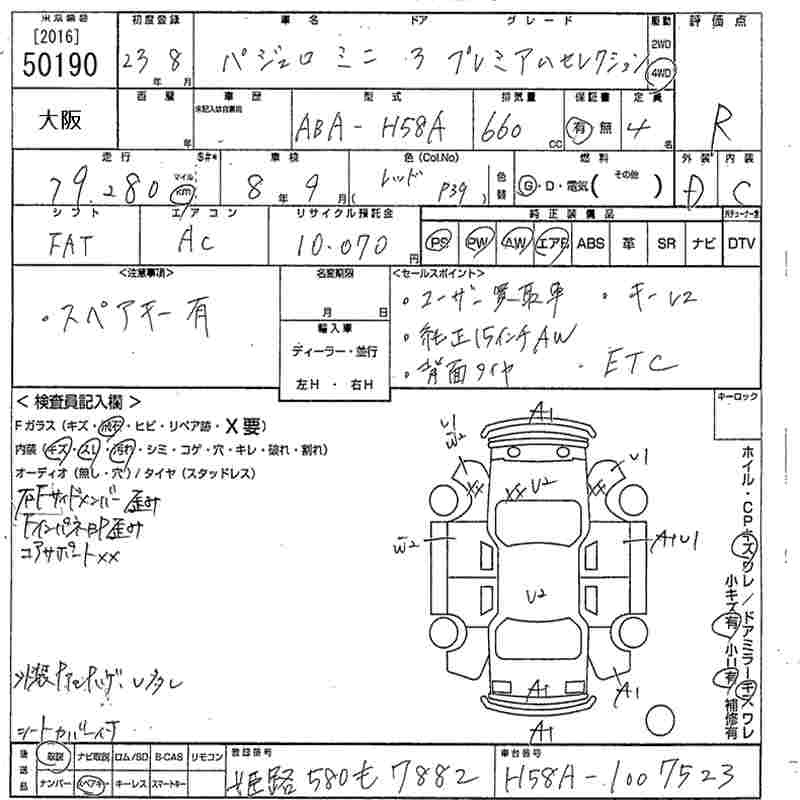 東京開催
[2016]
50190
大阪
初度登録 車名 ドア グレード 駆動 評価点
23 年 8 月 パジェロ ミニ 3 プレミアムセレクション 2WD 4WD R
西暦 車歴 型式 排気量 保証書 定員
年 未記入は自家用 ABA-H58A 660 CC 有 無 4 名
走行 S#* 車検 色 (Col.No) 燃料 外装 内装
79,280 マイル km 8年 9月 ( レッド P39 ) 色替 G・D・電気 ( その他 ) D C
シフト エアコン リサイクル預託金 純正装備品
FAT AC 10.070 円 PS PW AW エアB ABS 革 SR ナビ DTV
<注意事項> 名変期限 <セールスポイント>
・スペアキー有 月 日 ・ユーザー買取車 ・キーレス
輸入車
ディーラー・並行 ・純正15インチAW
左H・右H ・背面タイヤ ・ETC
キーロック
<検査員記入欄>
Fガラス (キズ・飛石・ヒビ・リペア跡・X要)
内装 (キズ・スレ・汚れ・シミ・コゲ・穴・キレ・破れ・割れ)
オーディオ (無し・穴) / タイヤ (スタッドレス)
右Fサイドメンバー歪み
FインパネBP歪み
コアサポートXX
シートカバー付
A1
U1
W2
U1
XX
XX U2
XX
W2
A1U1
U2
A1
A1
A1
ホイル・CPキズワレ/ドアミラーキズワレ
小キズ有 小U有 補修有
後送品 取説 ナビ取説 ロム/SD B-CAS リモコン
ナンバー スペアキー キーレス スマートキー
登録番号 姫路 580 も 7882
車台番号 H58A-1007523